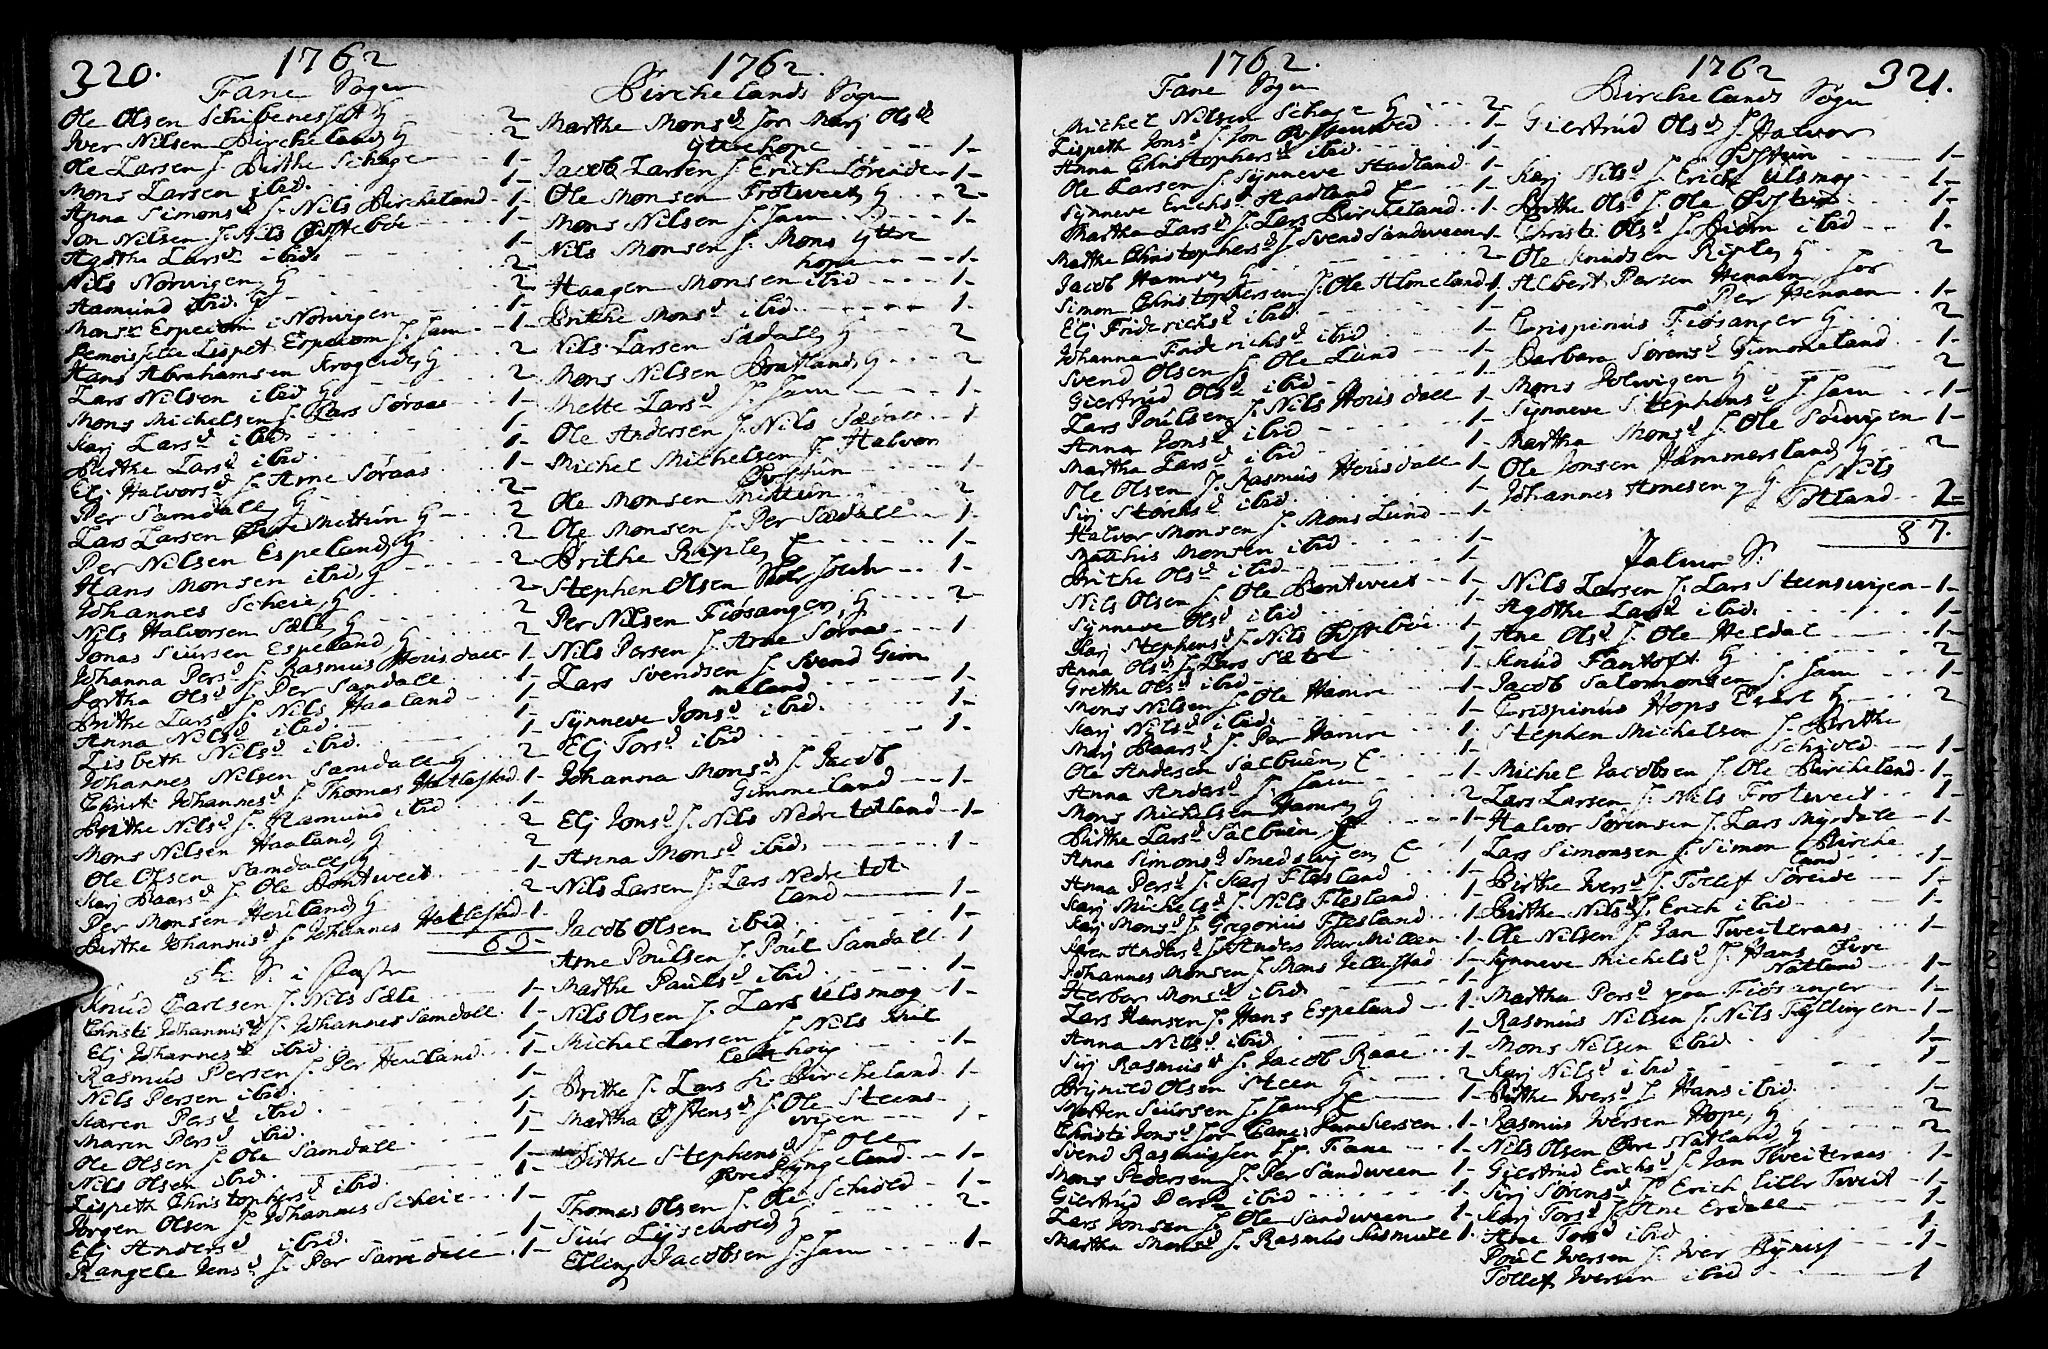 320.
1762
Fane Sogn
Ole Olsen Schibenes G - 2
Iver Nilsen Bircheland, G - 2
Ole Larsen J. Birthe Schage - 1-
Mons Larsen ibid. - 1-
Anna Simonsd J. Nils Bircheland - 1-
Jon Nilsen J. Nils Østebøe - 1-
Agathe Larsd ibid. - 1-
Nils Norvigen, G - 2
Aamund ibid. G - 2
Mons Espeion i Norvigen - 1-
Demoiselle Lispet Espeion J. Sam - 1-
Hans Abrahamsen Krogeide, G - 2
Lars Nilsen ibid G - 2
Mons Michelsen J. Lars Søraas - 1-
Karj Larsd ibid. - 1-
Birthe Larsd ibid. - 1-
Elj Halvorsd J. Arne Søraas - 1-
Per Samdall, G - 2
Lars Larsen Mittun G - 2
Per Nilsen Espeland, G - 2
Hans Monsen ibid, G - 2
Johannes Scheie, G - 2
Nils Halvorsen Sæle, G - 2
Jonas Siursen Espeland, G - 2
Johanna Persd J. Rasmus Housdall - 1-
Martha Olsd J. Per Samdall - 1-
Brithe Larsd J. Nils Haaland - 1-
Anna Nilsd ibid. - 1-
Lisbeth Nilsd ibid. - 1-
Johannes Nilsen Samdall G - 2
Christi Johannesd J. Thomas Hatlestad - 1-
Brithe Nilsd J. Hamund ibid - 1-
Mons Nilsen Haaland, G - 2
Ole Olsen Samdall, G - 2
Karj Baarsd J. Ole Bontveit - 1-
Per Monsen Heuland, G - 2
Birthe Johannisd J. Johannes Hatlestad - 1.
65-
Knud Carlsen J. Nils Sæle - 1-
Christi Johannisd J. Johannes Samdall - 1-
Elj Johannesd ibid. - 1-
Rasmus Persen J. Per Heuland - 1-
Nils Persen ibid. - 1-
Karen Persd ibid. - 1-
Maren Persd ibid. - 1-
Ole Olsen J. Ole Samdall - 1-
Nils Olsen ibid. - 1-
Lispeth Christophersd ibid. - 1-
Jørgen Olsen J. Johannes Scheie - 1-
Elj Andersd ibid. - 1-
Rangele Jensd J. Per Samdall - 1-
1762.
Birchelands Sogn
Marthe Monsd for Marj Olsd
Yttrehope - 1-
Jacob Larsen J. Erich Søreide - 1-
Ole Monsen Frotveet, G - 2-
Mons Nilsen J. Sam - 1-
Nils Monsen J. Mons Yttre
hope - 1-
Haagen Monsen ibid - 1-
Brithe Monsd ibid. - 1-
Nils Larsen Sædall, G - 2
Mons Nilsen Bratland, G - 2
Mette Larsd J. Sam - 1-
Ole Andersen J. Nils Sædall - 1
Michel Michelsen J. Halvor
Øvstun - 1-
Ole Monsen Mittun - 2
Ole Monsen J. Per Sædall - 1-
Brithe Riple, E - 1-
Stephen Olsen - 1-
Per Nilsen Fiøsanger, G - 2-
Nils Persen J. Arne Søraas - 1
Lars Svendsen J. Svend Gim
meland - 1-
Synneve Jonsd ibid. - 1-
Elj Torsd ibid - 1-
Johanna Monsd J. Jacob
Gimmeland - 1-
Elj Jonsd J. Nils Nedre totland - 1-
Anna Monsd ibid. - 1-
Nils Larsen J. Lars Nedre tot
land - 1-
Jacob Olsen ibid. - 1-
Arne Poulsen J. Poul Samdall - 1
Marthe Paulsd ibid. - 1-
Nils Olsen J. Lars Ulsmog - 1-
Michel Larsen J. Nils - 1-
Brithe J. Lars Bircheland - 1-
Martha Østensd J. Ole Steens
vigen - 1-
Birthe Stephensd J. Ole
Øvre Lyngeland - 1-
Thomas Olsen J. Ole Schiold - 1-
Siur Lysevold, G - 2-
Elling Jacobsen J. Sam - 1-
1762.
Fane Sogn
Michel Nilsen Schage G - 2-
Lispeth Jonsd J. Jon - 1-
Anna Christophersd ibid. - 1-
Ole Larsen J. Synneve Stadland - 1-
Synneve Erichsd Stadland E - 1-
Martha Larsd J. Lars Bircheland - 1-
Marthe Christophersd J. Svend Sandveen - 1-
Jacob Hamre, G - 2
Simon Christophersen J. Ole Almeland - 1.
Elj Friderichsd ibid. - 1-
Johanna Friderichsd ibid - 1-
Svend Olsen J. Ole Lund - 1-
Giertrud Olsd ibid - 1-
Lars Poulsen J. Nils Housdall - 1-
Anna Jonsd ibid - 1-
Martha Larsd ibid. - 1-
Ole Olsen J. Rasmus Housdall - 1-
Sirj Størensd ibid. - 1-
Halvor Monsen J. Mons Lund - 1-
Matthis Monsen ibid. - 1-
Brithe Olsd ibid. - 1-
Nils Olsen J. Ole Bontveit - 1-
Synneve Olsd ibid. - 1-
Karj Stephensd J. Nils Østebøe - 1-
Anna Olsd J. Lars Sætre - 1-
Grethe Olsd ibid. - 1-
Mons Nilsen J. Ole Hamre - 1-
Karj Nilsd ibid. - 1-
Marj Baarsd J. Per Hamre - 1-
Ole Andersen Salbuen, E - 1-
Anna Andersd J. Sam - 1-
Mons Michelsen Hamre, G - 2
Birthe Larsd Salbuen, E - 1-
Anna Simonsd Smedsvigen, E - 1
Anna Persd J. Karj Flesland - 1-
Karj Michelsd J. Nils Flesland - 1-
Karj Monsd J. Gregorius Flesland - 1-
Karen Andersd J. Anders - 1-
Johannes Monsen J. Mons Jellestad - 1-
Herbor Monsd ibid. - 1-
Lars Hansen J. Hans Espeland - 1-
Anna Nilsd ibid. - 1-
Sirj Rasmusd J. Jacob Raae - 1-
Brynild Olsen Steen G - 2
Morten Siursen J. Sam, E - 1-
Christi Jonsd for - 1-
Svend Rasmussen - Fane - 1-
Mons Pedersen J. Per Sandveen - 1-
Giertrud Persd ibid - 1-
Lars Jonsen J. Ole Sandveen - 1-
Martha Monsd J. Rasmus - 1.
1762
321.
Birchelands Sogn
Giertrud Olsd J. Halvor
Øvstun - 1-
Karj Nilsd J. Erich Ulsmog - 1-
Brithe Olsd J. Ole Øvstun - 1-
Christi Olsd J. Biørn ibid - 1-
Ole Knudsen Riple, G - 2
Albert Persen Hennen for
Per Hennen - 1-
Crispinus Fiøsanger G - 2
Barbara Sørensd Gimmeland - 1-
Mons Dolvigen G - 2
Synneve Stephensd J. Sam - 1-
Martha Monsd J. Ole Solvigen - 1-
Ole Jonsen Hammersland, G - 2
Johannes Arnesen, G J. Nils
Totland - 2-
87.
Nils Larsen J. Lars Steensvigen - 1-
Agathe Larsd ibid. - 1-
Ane Olsd J. Ole Heldal - 1-
Knud Fantoft G - 2
Jacob Salomonsen J. Sam - 1-
Crispinus Hops Eget G - 2
Stephen Michelsen J. Brithe
Schiold - 1-
Michel Jacobsen J. Ole Bircheland - 1-
Lars Larsen J. Nils Frotveit - 1-
Halvor Sørensen J. Lars Myrdall - 1-
Lars Simonsen J. Simon Birche
land - 1-
Birthe Iversd J. Tollef Søreide - 1-
Birthe Nilsd J. Erich ibid. - 1-
Ole Nilsen J. Jan Tveiteraas - 1-
Synneve Michelsd J. Hans Øvre
Natland - 1-
Martha Persd paa Fiøsanger - 1-
Rasmus Nilsen J. Nils Fyllingen - 1-
Mons Nilsen ibid. - 1-
Karj Nilsd ibid. - 1-
Birthe Iversd J. Hans ibid. - 1-
Rasmus Iversen Hope, G - 2
Nils Olsen Øvre Natland, G - 2
Giertrud Erichsd J. Jan Tveiteraas - 1-
Sirj Sørensd J. Erich Lille Tveit - 1-
Karj Torsd J. Ane Erdall - 1-
Ane Torsd ibid - 1
Poul Iversen J. Iver - 1-
Tollef Iversen ibid - 1